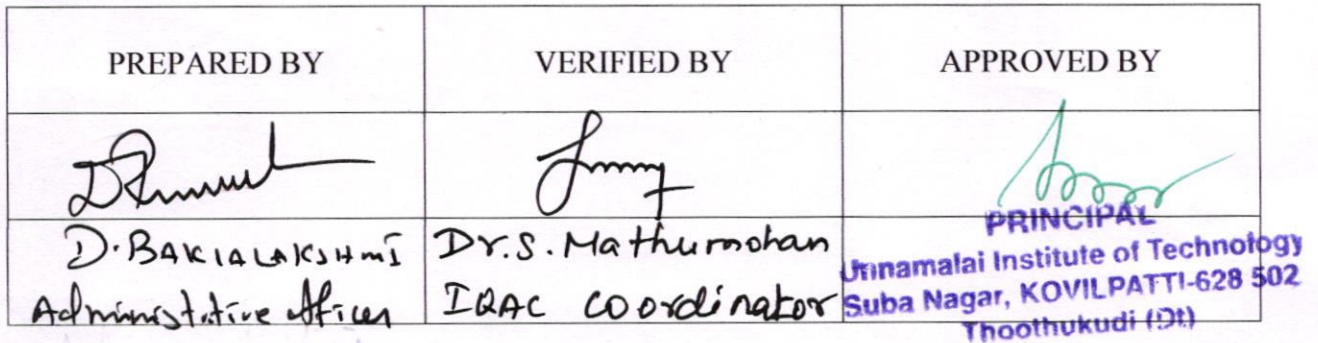 PREPARED BY
VERIFIED BY
APPROVED BY
D. BAKIALAKSHMI
Administrative Officer
Dr. S. Mathumohan
IQAC Coordinator
PRINCIPAL
Unnamalai Institute of Technology
Suba Nagar, KOVILPATTI-628 502
Thoothukudi (Dt)